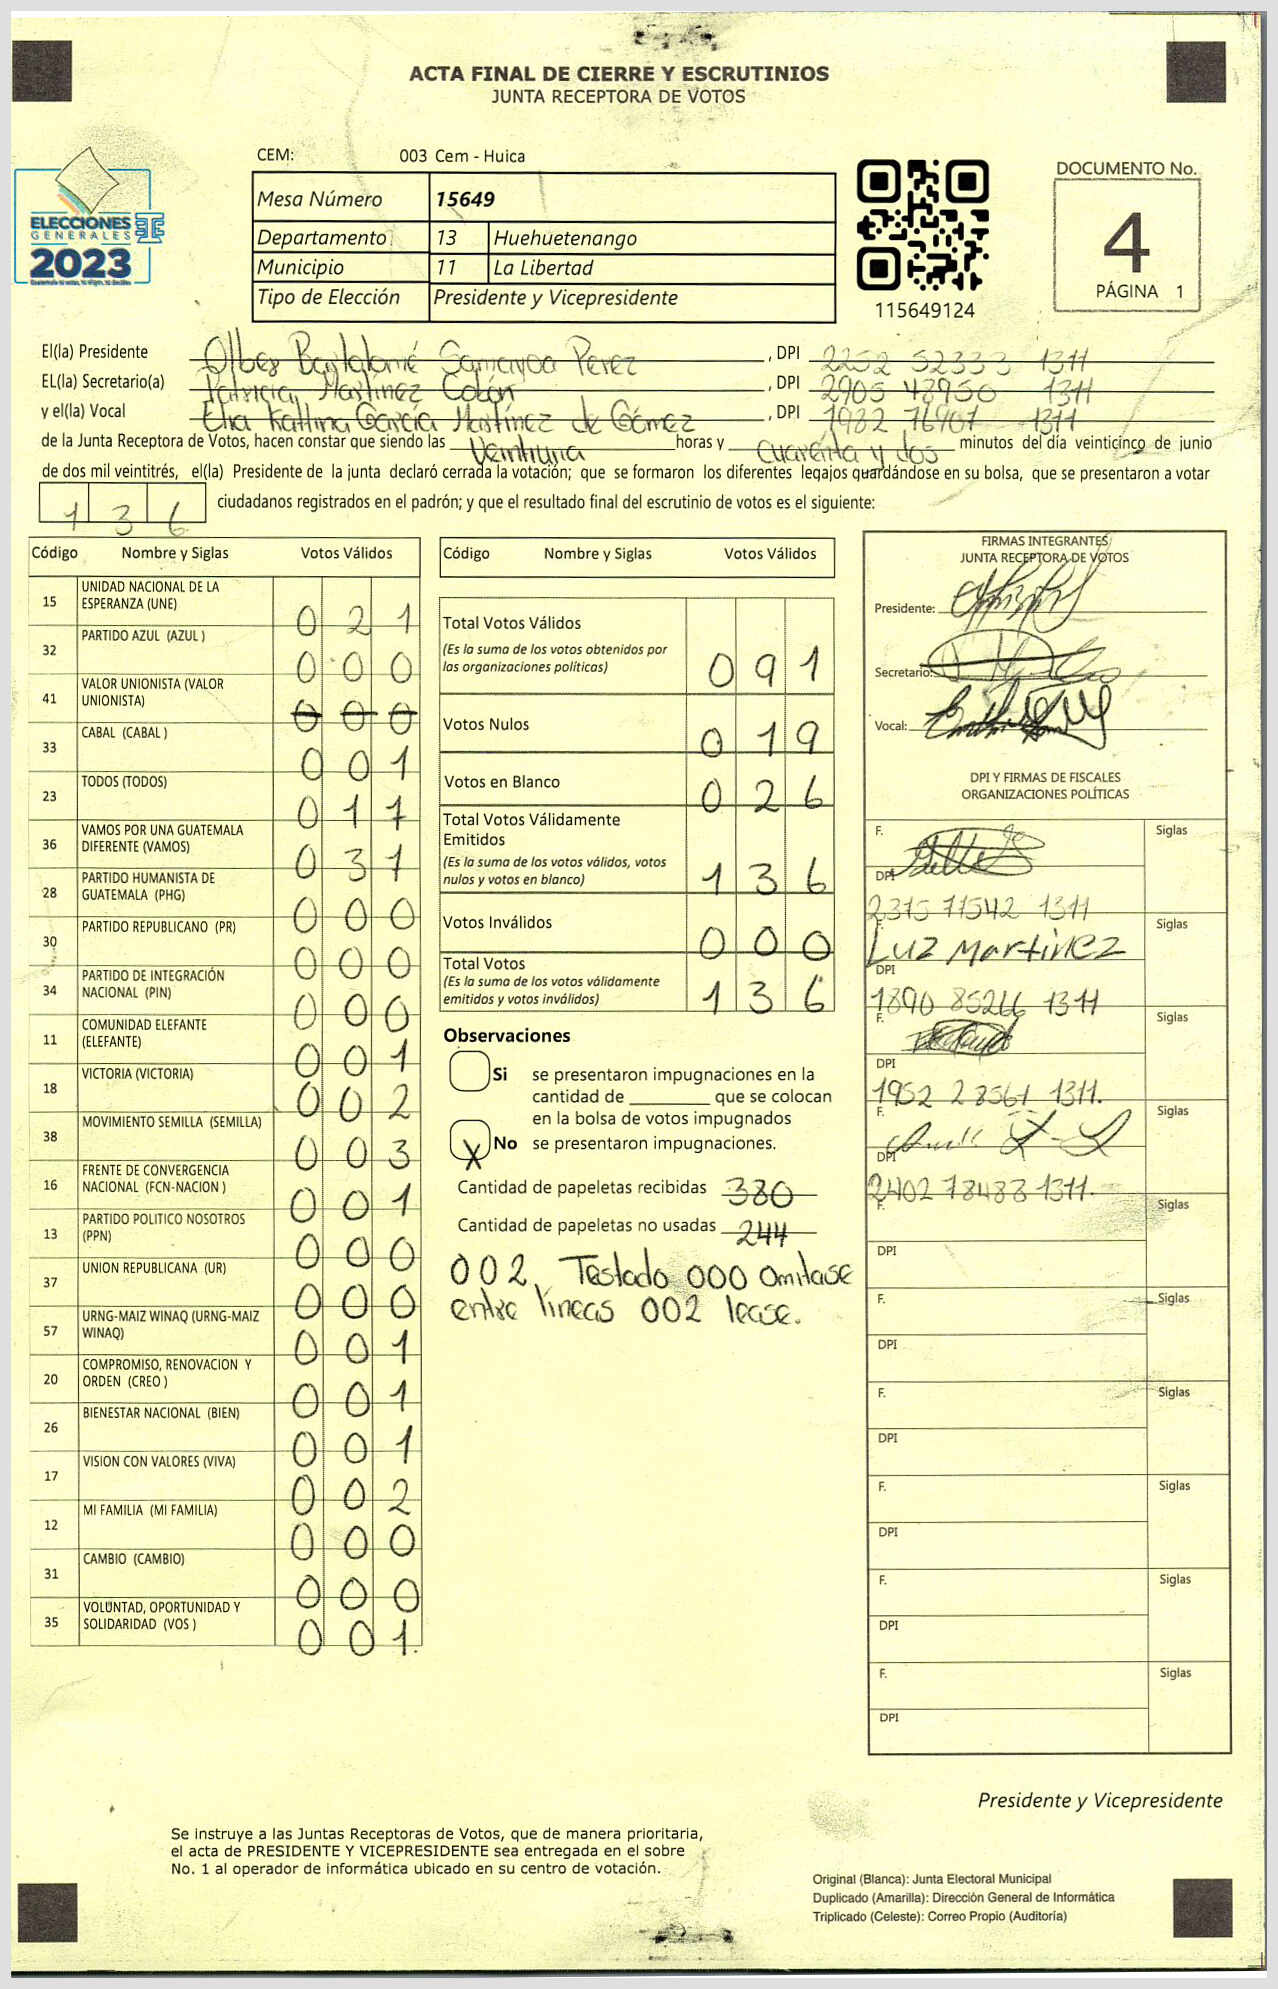 ACTA FINAL DE CIERRE Y ESCRUTINIOS
JUNTA RECEPTORA DE VOTOS
ELECCIONES
GENERALES
2023
CEM: 003 Cem - Huica
Mesa Número 15649
Departamento 13 Huehuetenango
Municipio 11 La Libertad
Tipo de Elección Presidente y Vicepresidente
115649124
DOCUMENTO No.
4
PÁGINA 1
El(la) Presidente Olbes Bartolomé Samayoa Perez, DPI 2252 52333 1311
EL(la) Secretario(a) Patricia Martinez Colón, DPI 2905 48950 1311
y el(la) Vocal García Martínez de Gómez, DPI 1982 76901 1311
de la Junta Receptora de Votos, hacen constar que siendo las Veintiuna horas y cuarenta y dos minutos del día veinticinco de junio
de dos mil veintitrés, el(la) Presidente de la junta declaró cerrada la votación; que se formaron los diferentes legajos guardándose en su bolsa, que se presentaron a votar
136 ciudadanos registrados en el padrón; y que el resultado final del escrutinio de votos es el siguiente:
Código Nombre y Siglas Votos Válidos
15 UNIDAD NACIONAL DE LA
ESPERANZA (UNE) 0 2 1
32 PARTIDO AZUL (AZUL ) 0 0 0
41 VALOR UNIONISTA (VALOR
UNIONISTA) 0 0 0
33 CABAL (CABAL ) 0 0 1
23 TODOS (TODOS) 0 1 7
36 VAMOS POR UNA GUATEMALA
DIFERENTE (VAMOS) 0 3 7
28 PARTIDO HUMANISTA DE
GUATEMALA (PHG) 0 0 0
30 PARTIDO REPUBLICANO (PR) 0 0 0
34 PARTIDO DE INTEGRACIÓN
NACIONAL (PIN) 0 0 0
11 COMUNIDAD ELEFANTE
(ELEFANTE) 0 0 1
18 VICTORIA (VICTORIA) 0 0 2
38 MOVIMIENTO SEMILLA (SEMILLA) 0 0 3
16 FRENTE DE CONVERGENCIA
NACIONAL (FCN-NACION ) 0 0 1
13 PARTIDO POLITICO NOSOTROS
(PPN) 0 0 0
37 UNION REPUBLICANA (UR) 0 0 0
57 URNG-MAIZ WINAQ (URNG-MAIZ
WINAQ) 0 0 1
20 COMPROMISO, RENOVACION Y
ORDEN (CREO ) 0 0 1
26 BIENESTAR NACIONAL (BIEN) 0 0 1
17 VISION CON VALORES (VIVA) 0 0 2
12 MI FAMILIA (MI FAMILIA) 0 0 0
31 CAMBIO (CAMBIO) 0 0 0
35 VOLUNTAD, OPORTUNIDAD Y
SOLIDARIDAD (VOS ) 0 0 1.
Código Nombre y Siglas Votos Válidos
Total Votos Válidos
(Es la suma de los votos obtenidos por
las organizaciones políticas) 0 9 1
Votos Nulos 0 1 9
Votos en Blanco 0 2 6
Total Votos Válidamente
Emitidos
(Es la suma de los votos válidos, votos
nulos y votos en blanco) 1 3 6
Votos Inválidos 0 0 0
Total Votos
(Es la suma de los votos válidamente
emitidos y votos inválidos) 1 3 6
Observaciones
Si se presentaron impugnaciones en la
cantidad de ________ que se colocan
en la bolsa de votos impugnados
X No se presentaron impugnaciones.
Cantidad de papeletas recibidas 380
Cantidad de papeletas no usadas 244
002, Testado 000 Omitase
entre líneas 002 lease.
FIRMAS INTEGRANTES
JUNTA RECEPTORA DE VOTOS
Presidente:
Secretario:
Vocal:
DPI Y FIRMAS DE FISCALES
ORGANIZACIONES POLÍTICAS
F. Siglas
DPI
2315 71542 1311
F. Siglas
Luz Martínez
DPI
1890 85266 1311
F. Siglas
DPI
1952 28561 1311.
F. Siglas
DPI
2402 78488 1311.
F. Siglas
DPI
F. Siglas
DPI
F. Siglas
DPI
F. Siglas
DPI
F. Siglas
DPI
F. Siglas
DPI
Presidente y Vicepresidente
Se instruye a las Juntas Receptoras de Votos, que de manera prioritaria,
el acta de PRESIDENTE Y VICEPRESIDENTE sea entregada en el sobre
No. 1 al operador de informática ubicado en su centro de votación.
Original (Blanca): Junta Electoral Municipal
Duplicado (Amarilla): Dirección General de Informática
Triplicado (Celeste): Correo Propio (Auditoría)